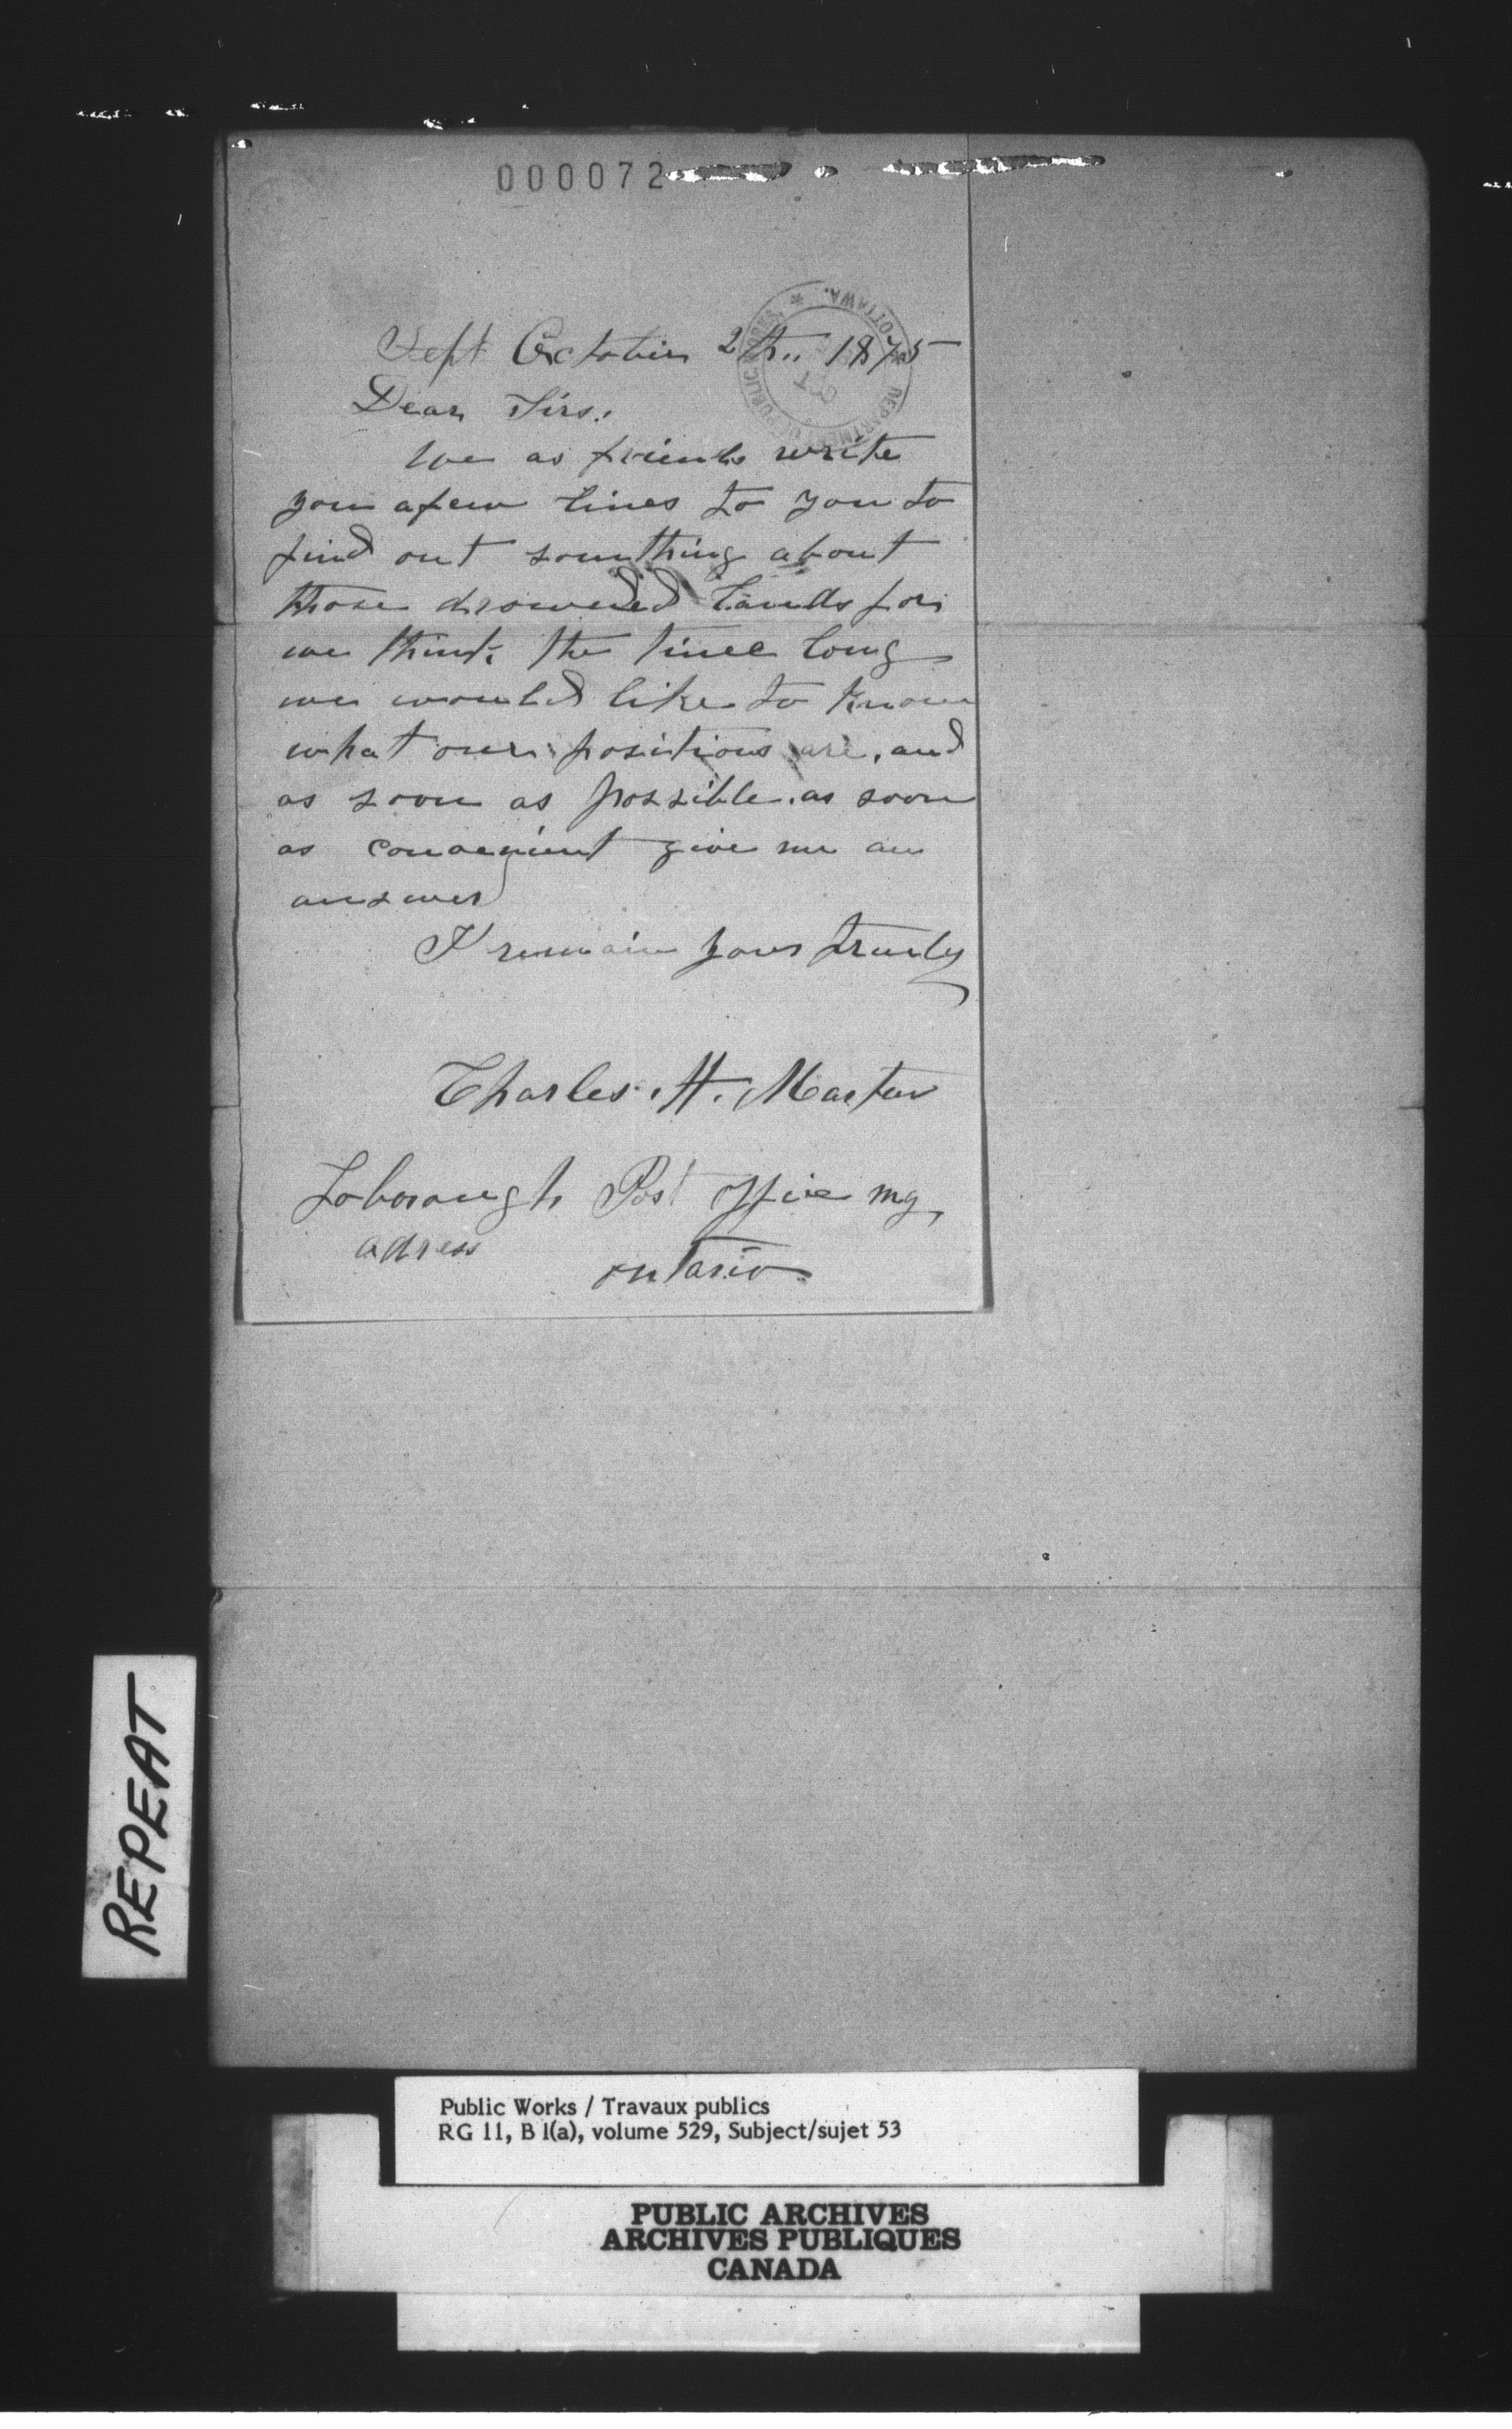 000072
DEPARTMENT OF PUBLIC WORKS * OTTAWA. *
OCT
Sept October 2th.. 1875
Dear Sirs.
We as friends write
you a few lines to you to
find out something about
those drownded lands for
we think the time long
we would like to know
what our positions are, and
as soon as possible. as soon
as convenient give me an
answer
I remain yours truely
Charles. H. Marten
Loborough Post office my
adress
ontario
REPEAT
Public Works / Travaux publics
RG 11, B 1(a), volume 529, Subject/sujet 53
PUBLIC ARCHIVES
ARCHIVES PUBLIQUES
CANADA